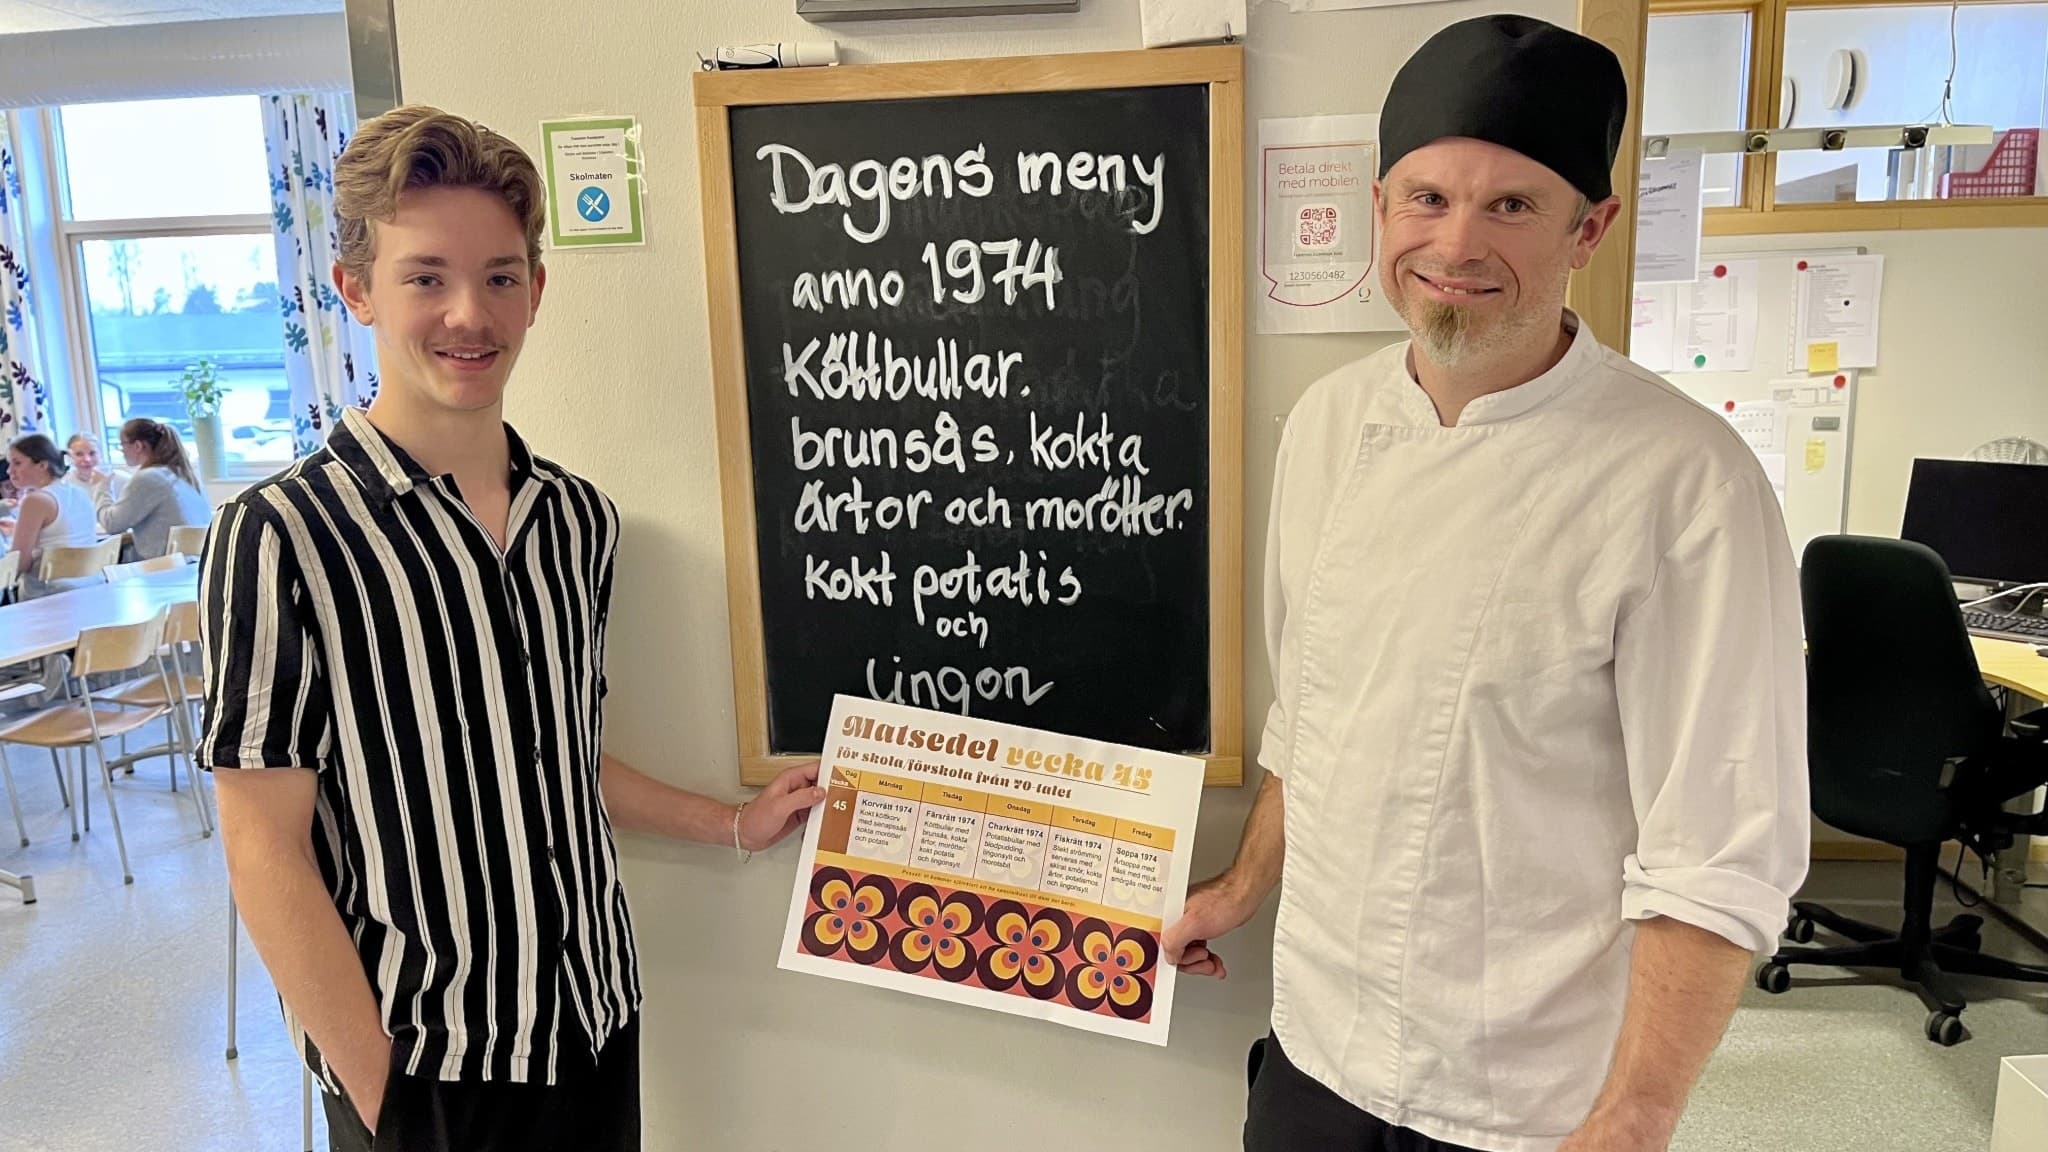 Dagens meny
anno 1974
Köttbullar.
brunsås, kokta
ärtor och morötter.
kokt potatis
och
Lingon
Skolmaten
Betala direkt
med mobilen
1230560482
Matsedel vecka 45
för skola/förskola från 70-talet
Dag
Vecka
Måndag
Tisdag
Onsdag
Torsdag
Fredag
45
Korvrätt 1974
Kokt köttkorv
med senapssås
kokta morötter
och potatis
Färsrätt 1974
Köttbullar med
brunsås, kokta
ärtor, morötter,
kokt potatis
och lingonsylt
Charkrätt 1974
Potatisbullar med
blodpudding,
lingonsylt och
morotsbit
Fiskrätt 1974
Stekt strömming
serveras med
skirat smör, kokta
ärtor, potatismos
och lingonsylt
Soppa 1974
Ärtsoppa med
fläsk med mjuk
smörgås med ost